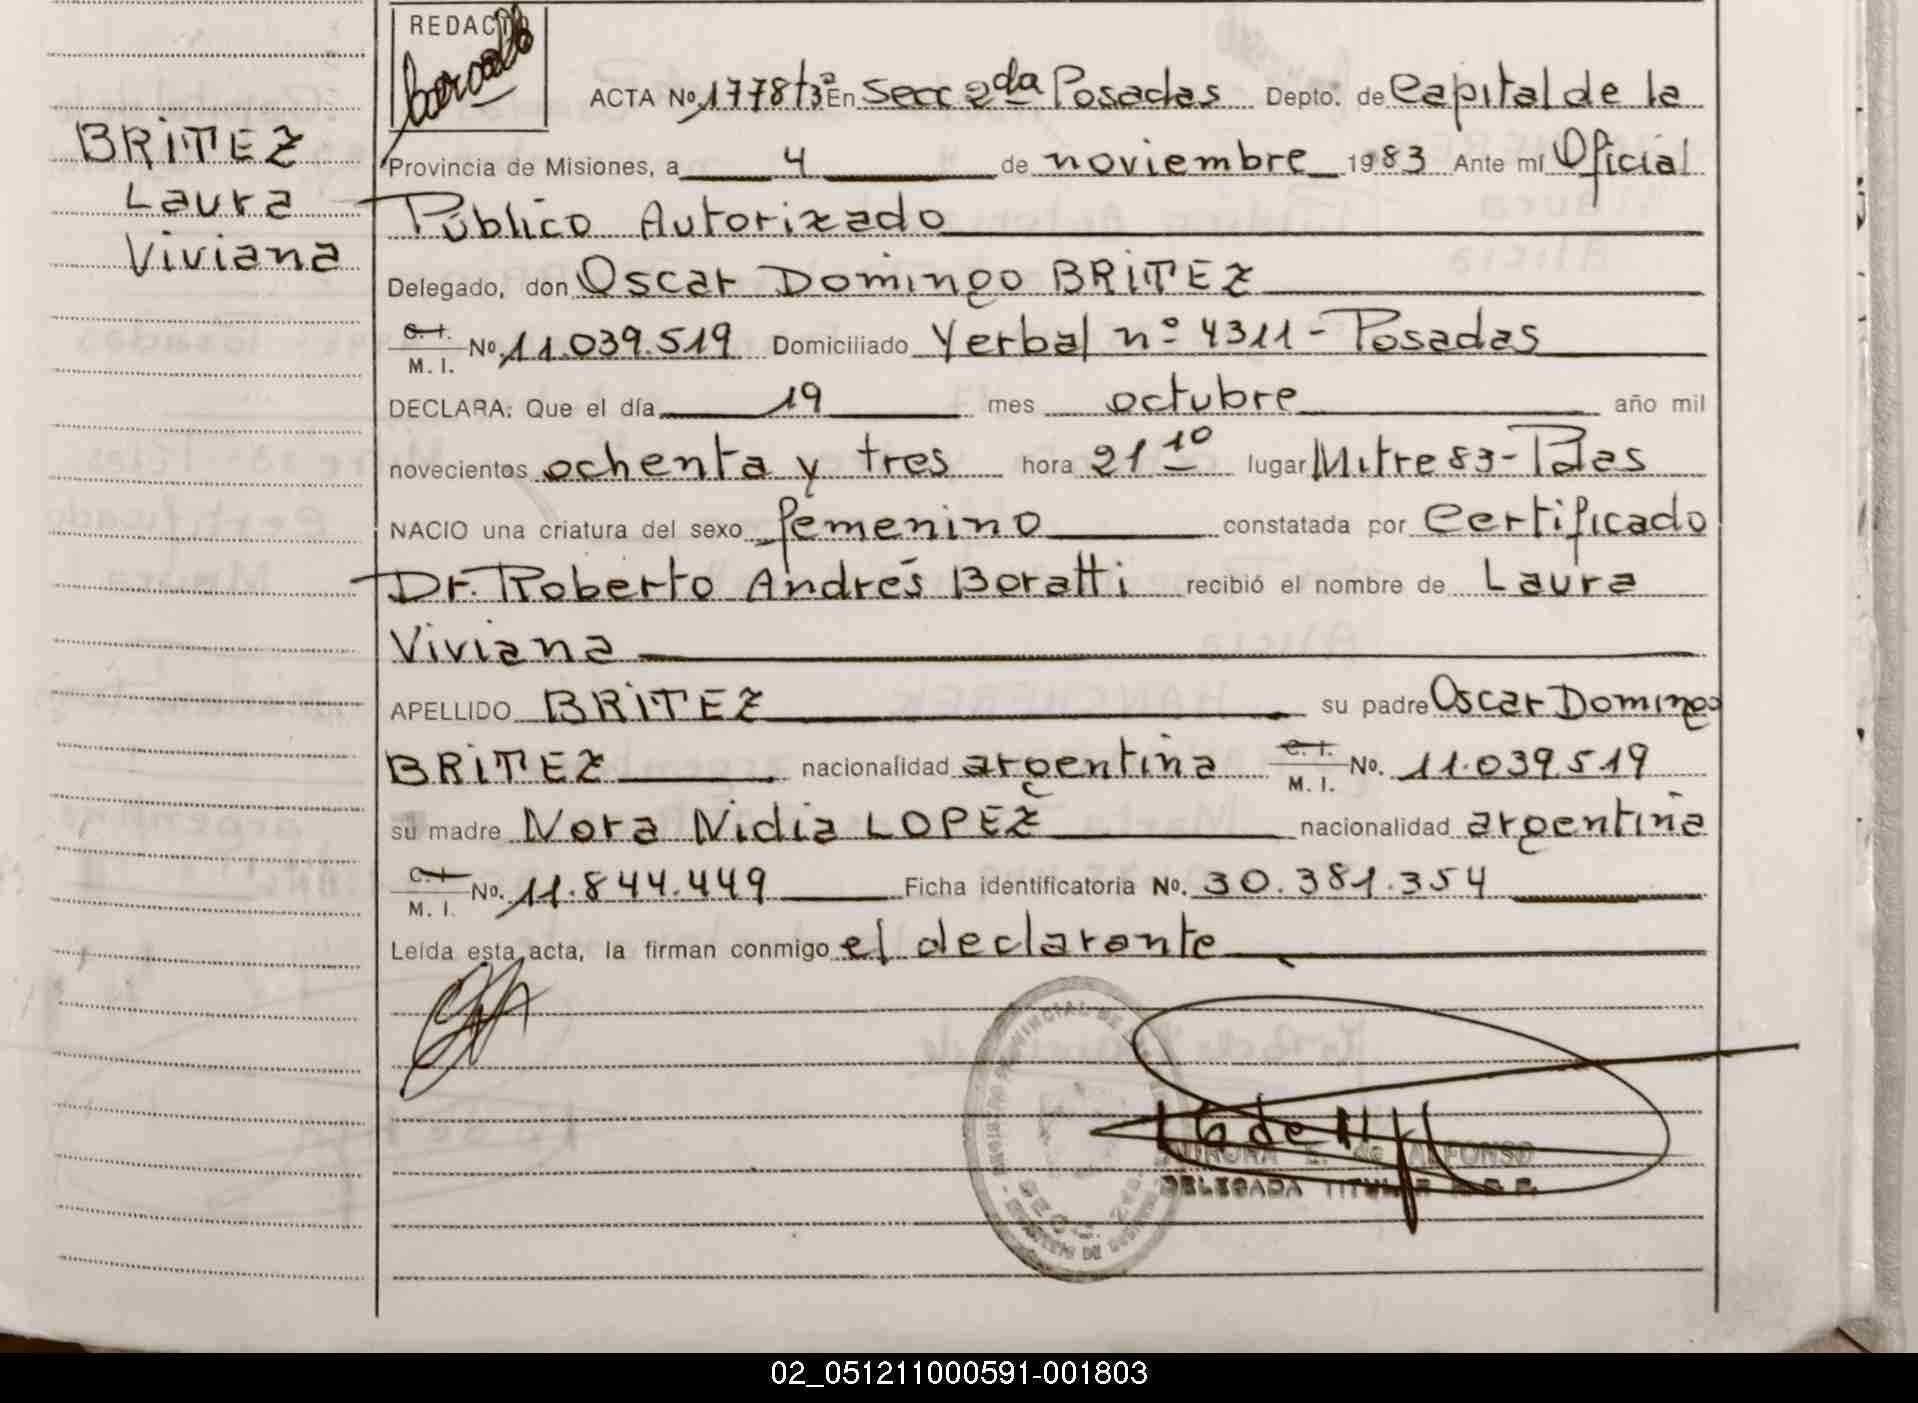 REDACTÓ
BRITEZ
Laura
Viviana
ACTA Nº 1778 tº3º En Secc 2da Posadas Depto. de Capital de la
Provincia de Misiones, a 4 de noviembre 1983 Ante mí Oficial
Público Autorizado
Delegado, don Oscar Domingo BRITEZ
C.I. M.I. Nº 11.039.519 Domiciliado Yerbal nº 4311 - Posadas
DECLARA: Que el día 19 mes octubre año mil
novecientos ochenta y tres hora 21 10 lugar Mitre 83 - Pdas
NACIO una criatura del sexo femenino constatada por Certificado
Dr. Roberto Andrés Boratti recibió el nombre de Laura
Viviana
APELLIDO BRITEZ su padre Oscar Domingo
BRITEZ nacionalidad argentina C.I. M.I. No. 11.039.519
su madre Nora Nidia LOPEZ nacionalidad argentina
C.I. M.I. No. 11.844.449 Ficha identificatoria No. 30.381.354
Leída esta acta, la firman conmigo el declarante
AURORA E. de ALFONSO
DELEGADA TITULAR R.D.P.
02_051211000591-001803